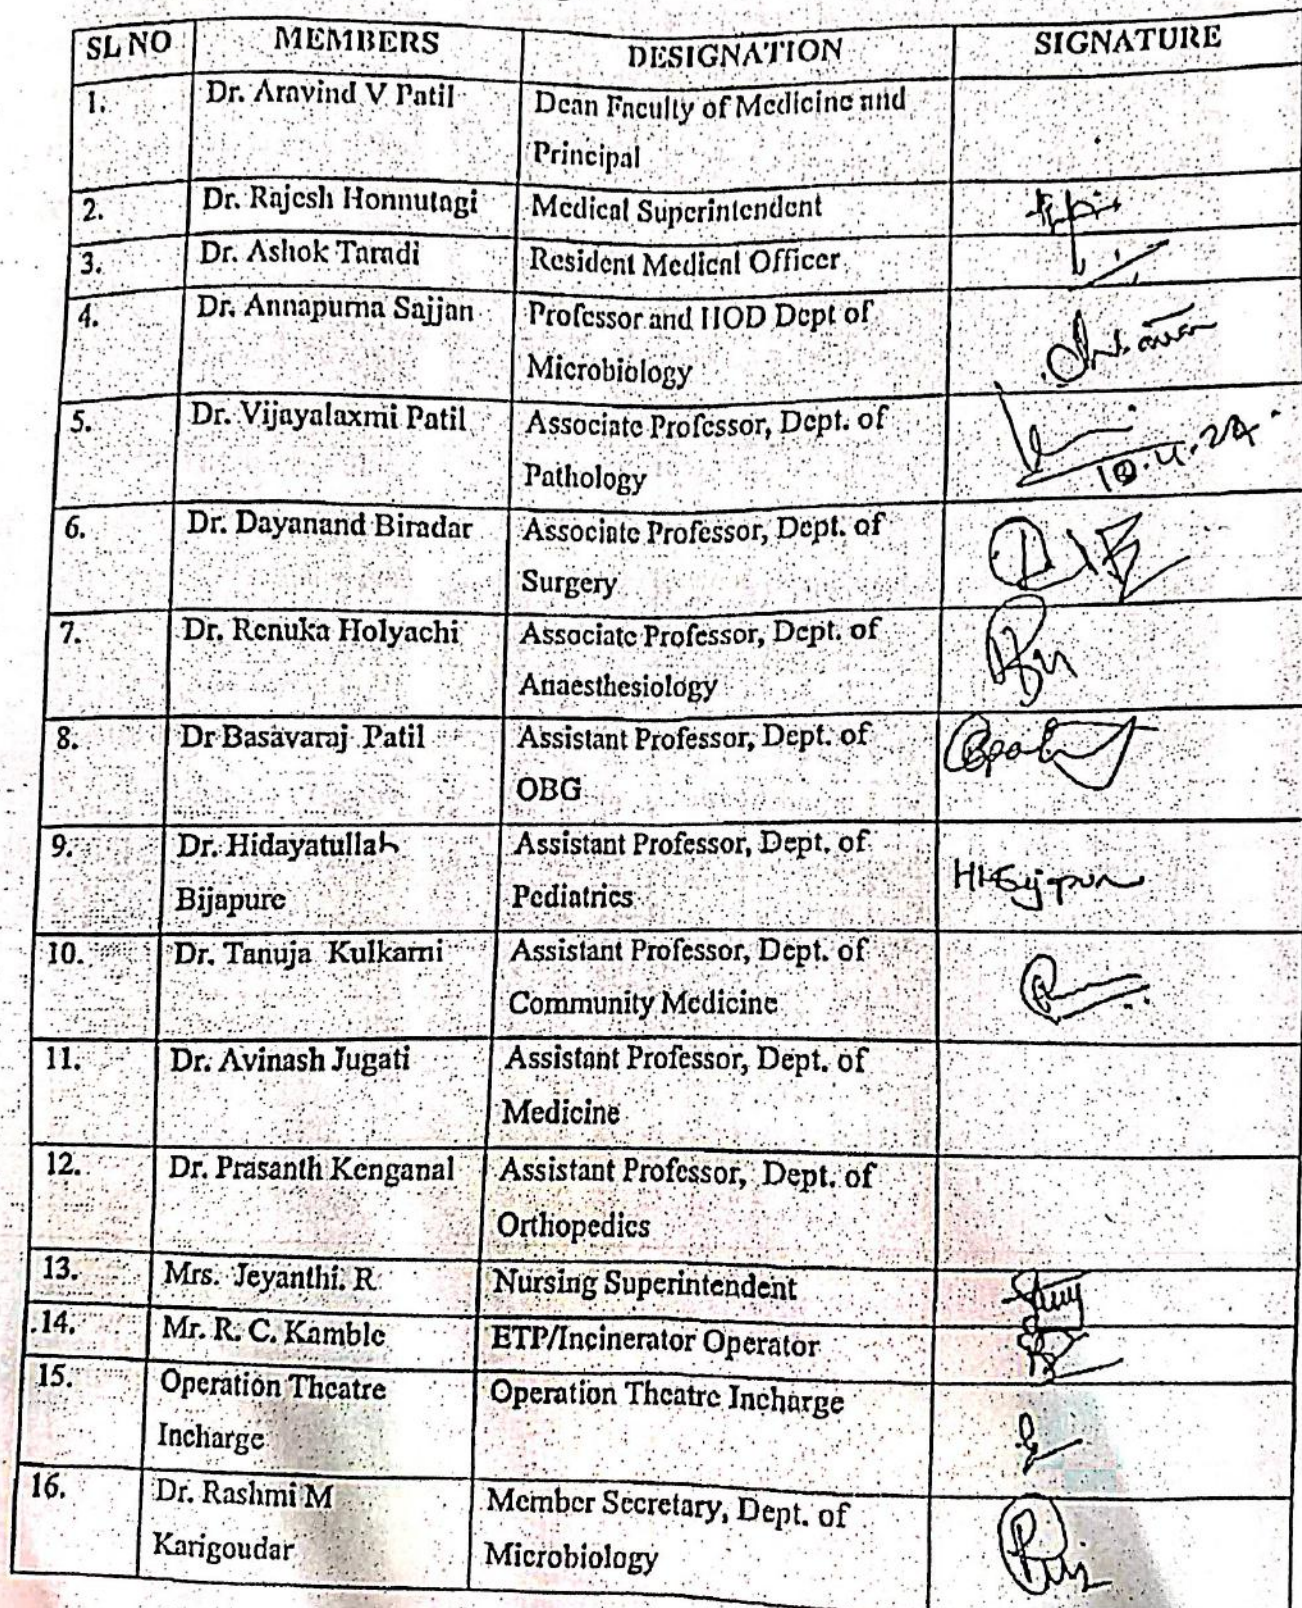 SL NO MEMBERS DESIGNATION SIGNATURE
1. Dr. Aravind V Patil Dean Faculty of Medicine and
Principal
2. Dr. Rajesh Honnutagi Medical Superintendent
3. Dr. Ashok Taradi Resident Medical Officer
4. Dr. Annapurna Sajjan Professor and HOD Dept of
Microbiology
5. Dr. Vijayalaxmi Patil Associate Professor, Dept. of
Pathology
6. Dr. Dayanand Biradar Associate Professor, Dept. of
Surgery
7. Dr. Renuka Holyachi Associate Professor, Dept. of
Anaesthesiology
8. Dr Basavaraj Patil Assistant Professor, Dept. of
OBG
9. Dr. Hidayatullah Assistant Professor, Dept. of
Bijapure Pediatrics
10. Dr. Tanuja Kulkarni Assistant Professor, Dept. of
Community Medicine
11. Dr. Avinash Jugati Assistant Professor, Dept. of
Medicine
12. Dr. Prasanth Kenganal Assistant Professor, Dept. of
Orthopedics
13. Mrs. Jeyanthi. R Nursing Superintendent
14. Mr. R. C. Kamble ETP/Incinerator Operator
15. Operation Theatre Operation Theatre Incharge
Incharge
16. Dr. Rashmi M Member Secretary, Dept. of
Karigoudar Microbiology